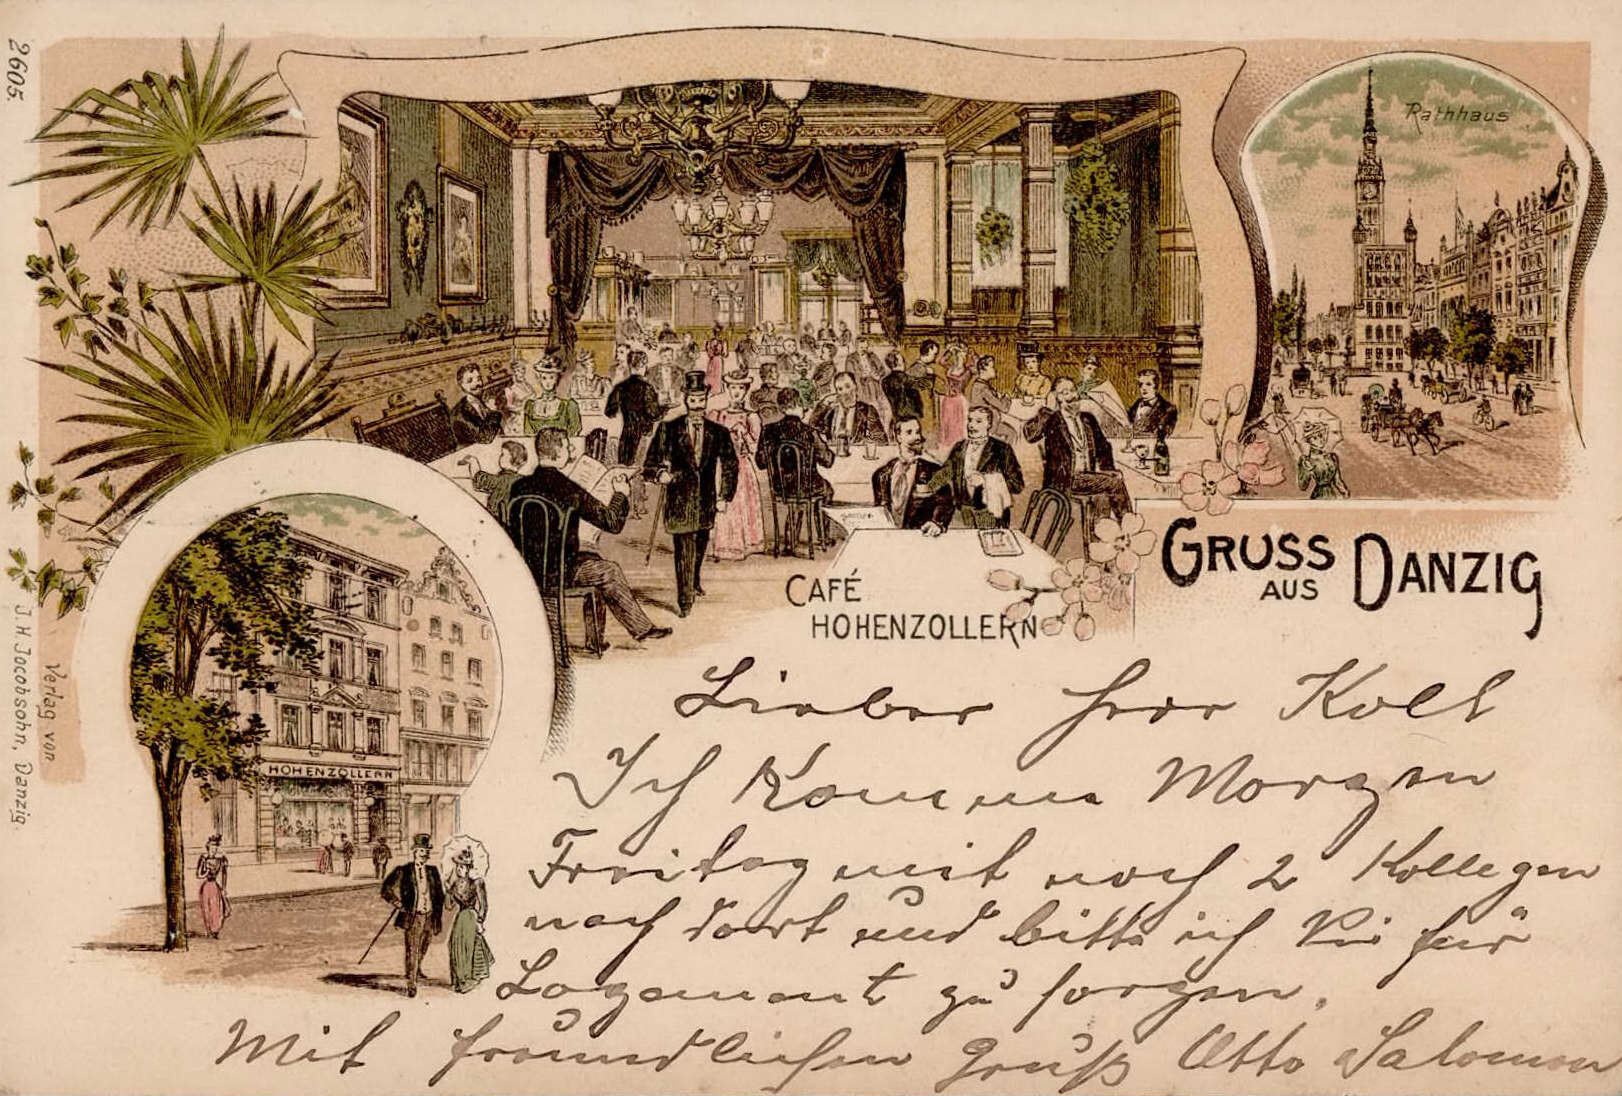 2605.
Rathhaus
GRUSS
AUS
DANZIG
CAFÉ
HOHENZOLLERN
HOHENZOLLERN
Verlag von
J. H. Jacobsohn, Danzig.
Lieber Herr Koll
Ich komme Morgen
Freitag mit noch 2 Kollegen
nach dort und bitte ich Sie für
Logement zu sorgen.
Mit freundlichen Gruß Otto Salomon